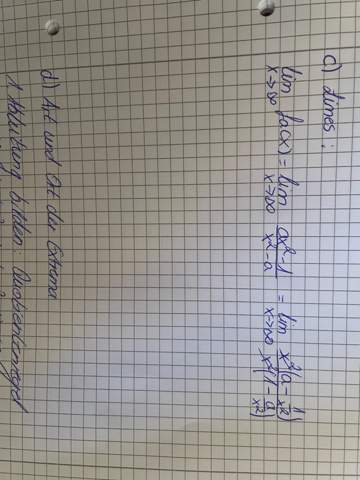 c) Limes:
lim x→∞ fa(x) = lim x→∞ (ax²-1)/(x²-a) = lim x→∞ (x²(a-1/x²))/(x²(1-a/x²))
d) Art und Ort der Extrema
1. Ableitung bilden: Quotientenregel